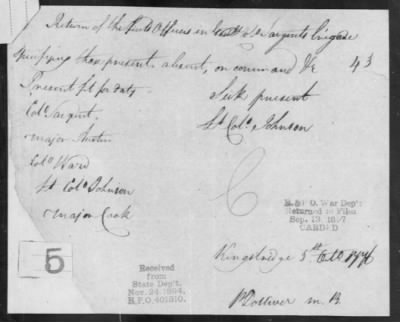 Return of the Field Officers in Colo Sargents brigade
specifying those present, absent, on command &c 43
Present fit for duty
Colo Sargent,
Major Austin
Colo Ward
Lt Colo Johnson
Major Cook
Sick present
Lt Colo Johnson
R. & P. O. War Dep't
Returned to Files
Sep. 13 1897
CARDED
5
Received
from
State Dep't,
Nov. 24, 1894,
R.P.O. 401310.
Kingsbridge 5th Octo 1776
P Dolliver M. B